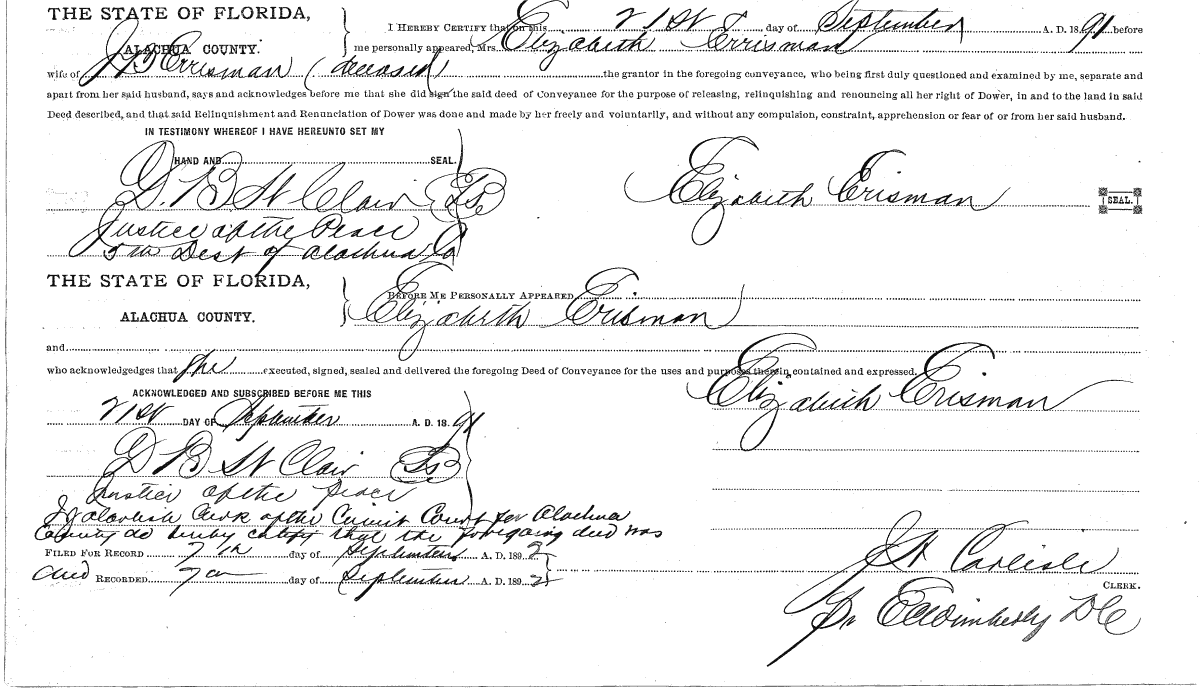 THE STATE OF FLORIDA,
ALACHUA COUNTY.
I HEREBY CERTIFY that on this 21st day of September A. D. 1891 before
me personally appeared, Mrs. Elizabeth Errisman
wife of Errisman (deceased) the grantor in the foregoing conveyance, who being first duly questioned and examined by me, separate and
apart from her said husband, says and acknowledges before me that she did sign the said deed of Conveyance for the purpose of releasing, relinquishing and renouncing all her right of Dower, in and to the land in said
Deed described, and that said Relinquishment and Renunciation of Dower was done and made by her freely and voluntarily, and without any compulsion, constraint, apprehension or fear of or from her said husband.
IN TESTIMONY WHEREOF I HAVE HEREUNTO SET MY
HAND AND SEAL.
D. B St Clair Ls
Elizabeth Erisman SEAL.
Justice of the Peace
5th Dest of Alachua Co
THE STATE OF FLORIDA,
ALACHUA COUNTY.
BEFORE ME PERSONALLY APPEARED
Elizabeth Erisman
and
who acknowledgedges that she executed, signed, sealed and delivered the foregoing Deed of Conveyance for the uses and purposes therein contained and expressed.
ACKNOWLEDGED AND SUBSCRIBED BEFORE ME THIS
Elizabeth Erisman
21st DAY OF September A. D. 1891
D B St Clair Ls
Justice of the peace
Clerk of the Circuit Court for Alachua
County do hereby certify that the foregoing deed was
FILED FOR RECORD 7th day of September A. D. 1892
and RECORDED 7th day of September A. D. 1892
Carlisle
CLERK.
Wimberly D C